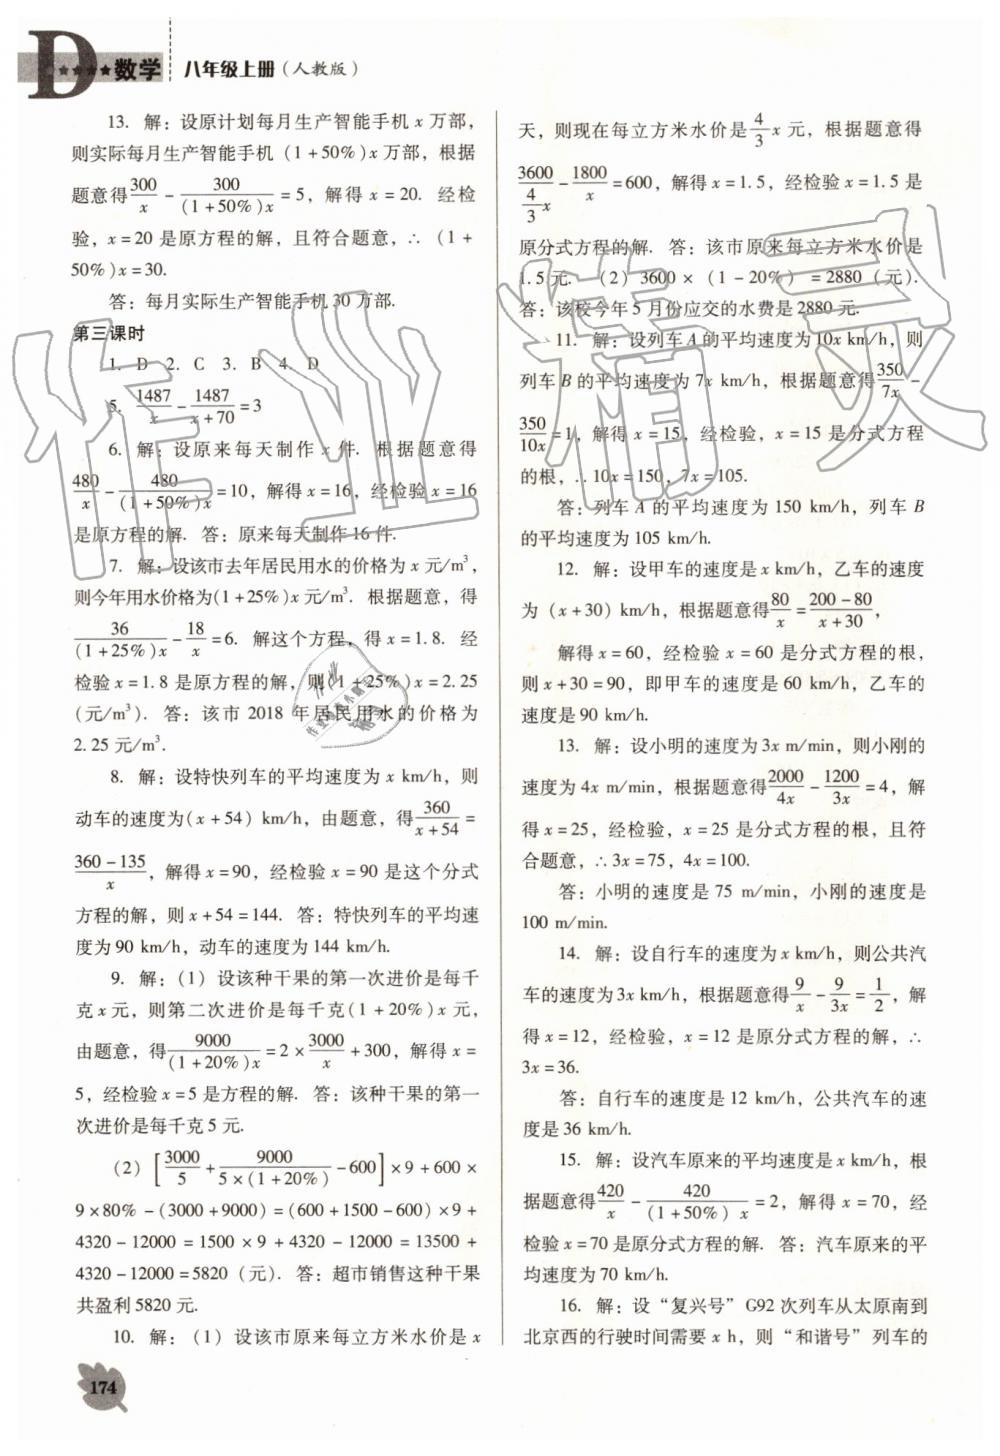 D 数学 八年级上册（人教版）
13. 解：设原计划每月生产智能手机 x 万部，
则实际每月生产智能手机 (1+50%)x 万部，根据
题意得 300/x - 300/(1+50%)x = 5，解得 x = 20. 经检
验，x = 20 是原方程的解，且符合题意，∴ (1+
50%)x = 30.
答：每月实际生产智能手机 30 万部.
第三课时
1. D 2. C 3. B 4. D
5. 1487/x - 1487/(x+70) = 3
6. 解：设原来每天制作 x 件. 根据题意得
480/x - 480/(1+50%)x = 10，解得 x = 16，经检验 x = 16
是原方程的解. 答：原来每天制作 16 件.
7. 解：设该市去年居民用水的价格为 x 元/m³，
则今年用水价格为(1+25%)x 元/m³. 根据题意，得
36/(1+25%)x - 18/x = 6. 解这个方程，得 x = 1.8. 经
检验 x = 1.8 是原方程的解，则 (1+25%)x = 2.25
(元/m³). 答：该市 2018 年居民用水的价格为
2.25 元/m³.
8. 解：设特快列车的平均速度为 x km/h，则
动车的速度为(x+54) km/h，由题意，得 360/(x+54) =
(360-135)/x，解得 x = 90，经检验 x = 90 是这个分式
方程的解，则 x+54 = 144. 答：特快列车的平均速
度为 90 km/h，动车的速度为 144 km/h.
9. 解：(1) 设该种干果的第一次进价是每千
克 x 元，则第二次进价是每千克(1+20%)x 元，
由题意，得 9000/(1+20%)x = 2×3000/x + 300，解得 x =
5，经检验 x = 5 是方程的解. 答：该种干果的第一
次进价是每千克 5 元.
(2) [3000/5 + 9000/5×(1+20%) - 600]×9+600×
9×80% - (3000+9000) = (600+1500-600)×9+
4320-12000 = 1500×9+4320-12000 = 13500+
4320-12000 = 5820（元）. 答：超市销售这种干果
共盈利 5820 元.
10. 解：(1) 设该市原来每立方米水价是 x
174
天，则现在每立方米水价是 4/3 x 元，根据题意得
3600/(4/3 x) - 1800/x = 600，解得 x = 1.5，经检验 x = 1.5 是
原分式方程的解. 答：该市原来每立方米水价是
1.5 元. (2) 3600×(1-20%) = 2880（元）.
答：该校今年 5 月份应交的水费是 2880 元.
11. 解：设列车 A 的平均速度为 10x km/h，则
列车 B 的平均速度为 7x km/h，根据题意得 350/7x -
350/10x = 1，解得 x = 15，经检验，x = 15 是分式方程
的根，∴ 10x = 150，7x = 105.
答：列车 A 的平均速度为 150 km/h，列车 B
的平均速度为 105 km/h.
12. 解：设甲车的速度是 x km/h，乙车的速度
为 (x+30) km/h，根据题意得 80/x = (200-80)/(x+30)，
解得 x = 60，经检验 x = 60 是分式方程的根，
则 x+30 = 90，即甲车的速度是 60 km/h，乙车的
速度是 90 km/h.
13. 解：设小明的速度是 3x m/min，则小刚的
速度为 4x m/min，根据题意得 2000/4x - 1200/3x = 4，解
得 x = 25，经检验，x = 25 是分式方程的根，且符
合题意，∴ 3x = 75，4x = 100.
答：小明的速度是 75 m/min，小刚的速度是
100 m/min.
14. 解：设自行车的速度为 x km/h，则公共汽
车的速度为 3x km/h，根据题意得 9/x - 9/3x = 1/2，解
得 x = 12，经检验，x = 12 是原分式方程的解，∴
3x = 36.
答：自行车的速度是 12 km/h，公共汽车的速
度是 36 km/h.
15. 解：设汽车原来的平均速度是 x km/h，根
据题意得 420/x - 420/(1+50%)x = 2，解得 x = 70，经
检验 x = 70 是原分式方程的解. 答：汽车原来的平
均速度为 70 km/h.
16. 解：设“复兴号”G92 次列车从太原南到
北京西的行驶时间需要 x h，则“和谐号”列车的
作业精灵